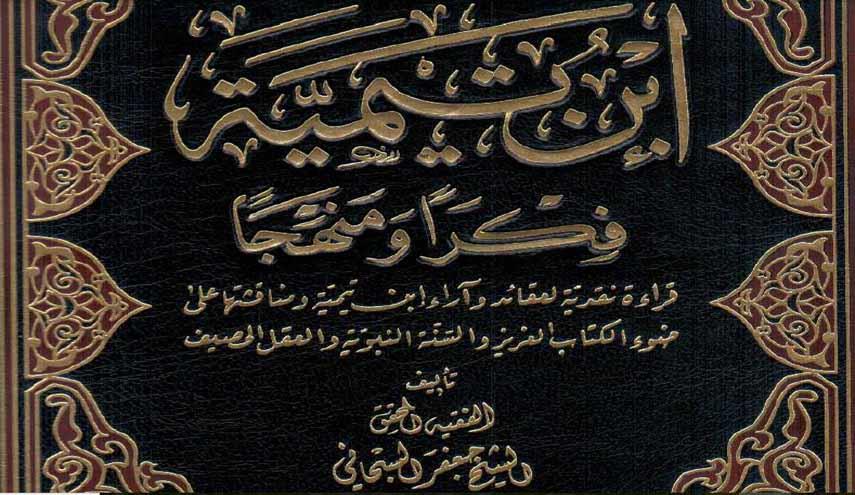 ابن تيمية
فِكْرًا وَ مَنْهَجًا
قراءة نقدية لعقائد وآراء ابن تيميّة ومناقشتها على
ضوء الكتاب العزيز والسّنّة النبويّة والعقل الحصيف
تأليف
الفقيه المحقق
الشيخ جعفر السبحاني